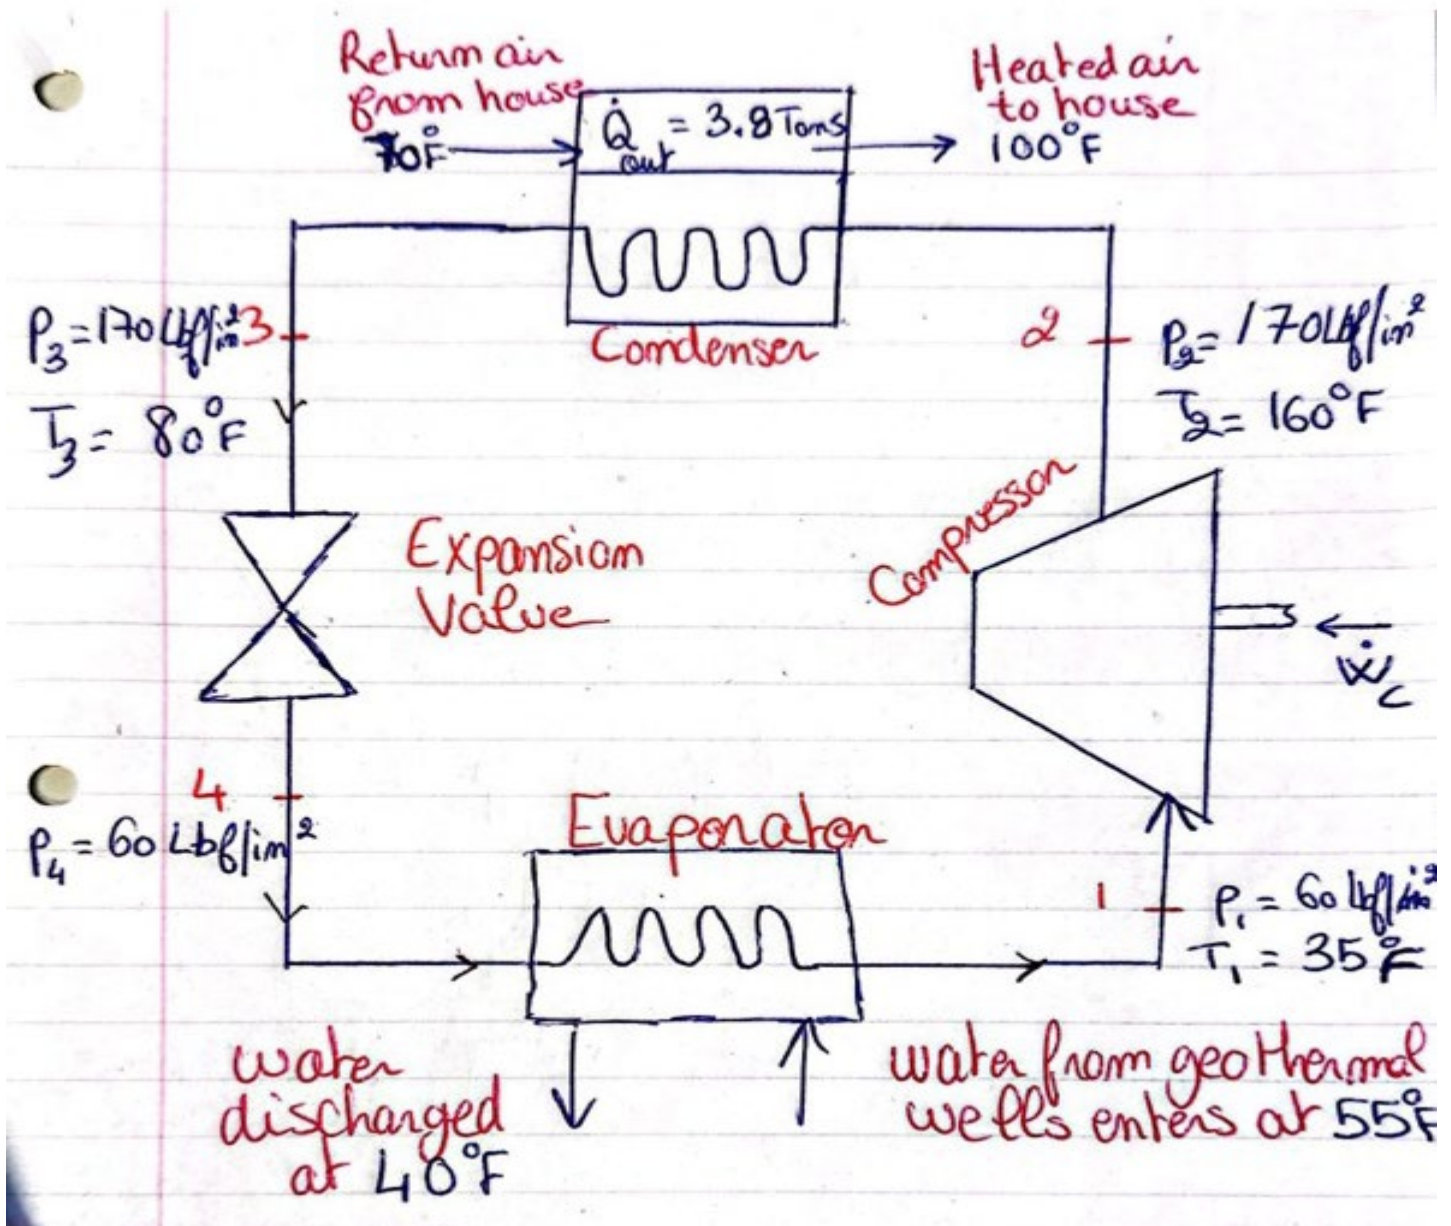 Return air
from house
70°F
Q̇out = 3.8 Tons
Heated air
to house
100°F
Condenser
P3 = 170 Lbf/in²
3
T3 = 80°F
2
P2 = 170 Lbf/in²
T2 = 160°F
Expansion
Valve
Compressor
Ẇc
4
P4 = 60 Lbf/in²
Evaporator
1
P1 = 60 Lbf/in²
T1 = 35°F
water
discharged
at 40°F
water from geothermal
wells enters at 55°F